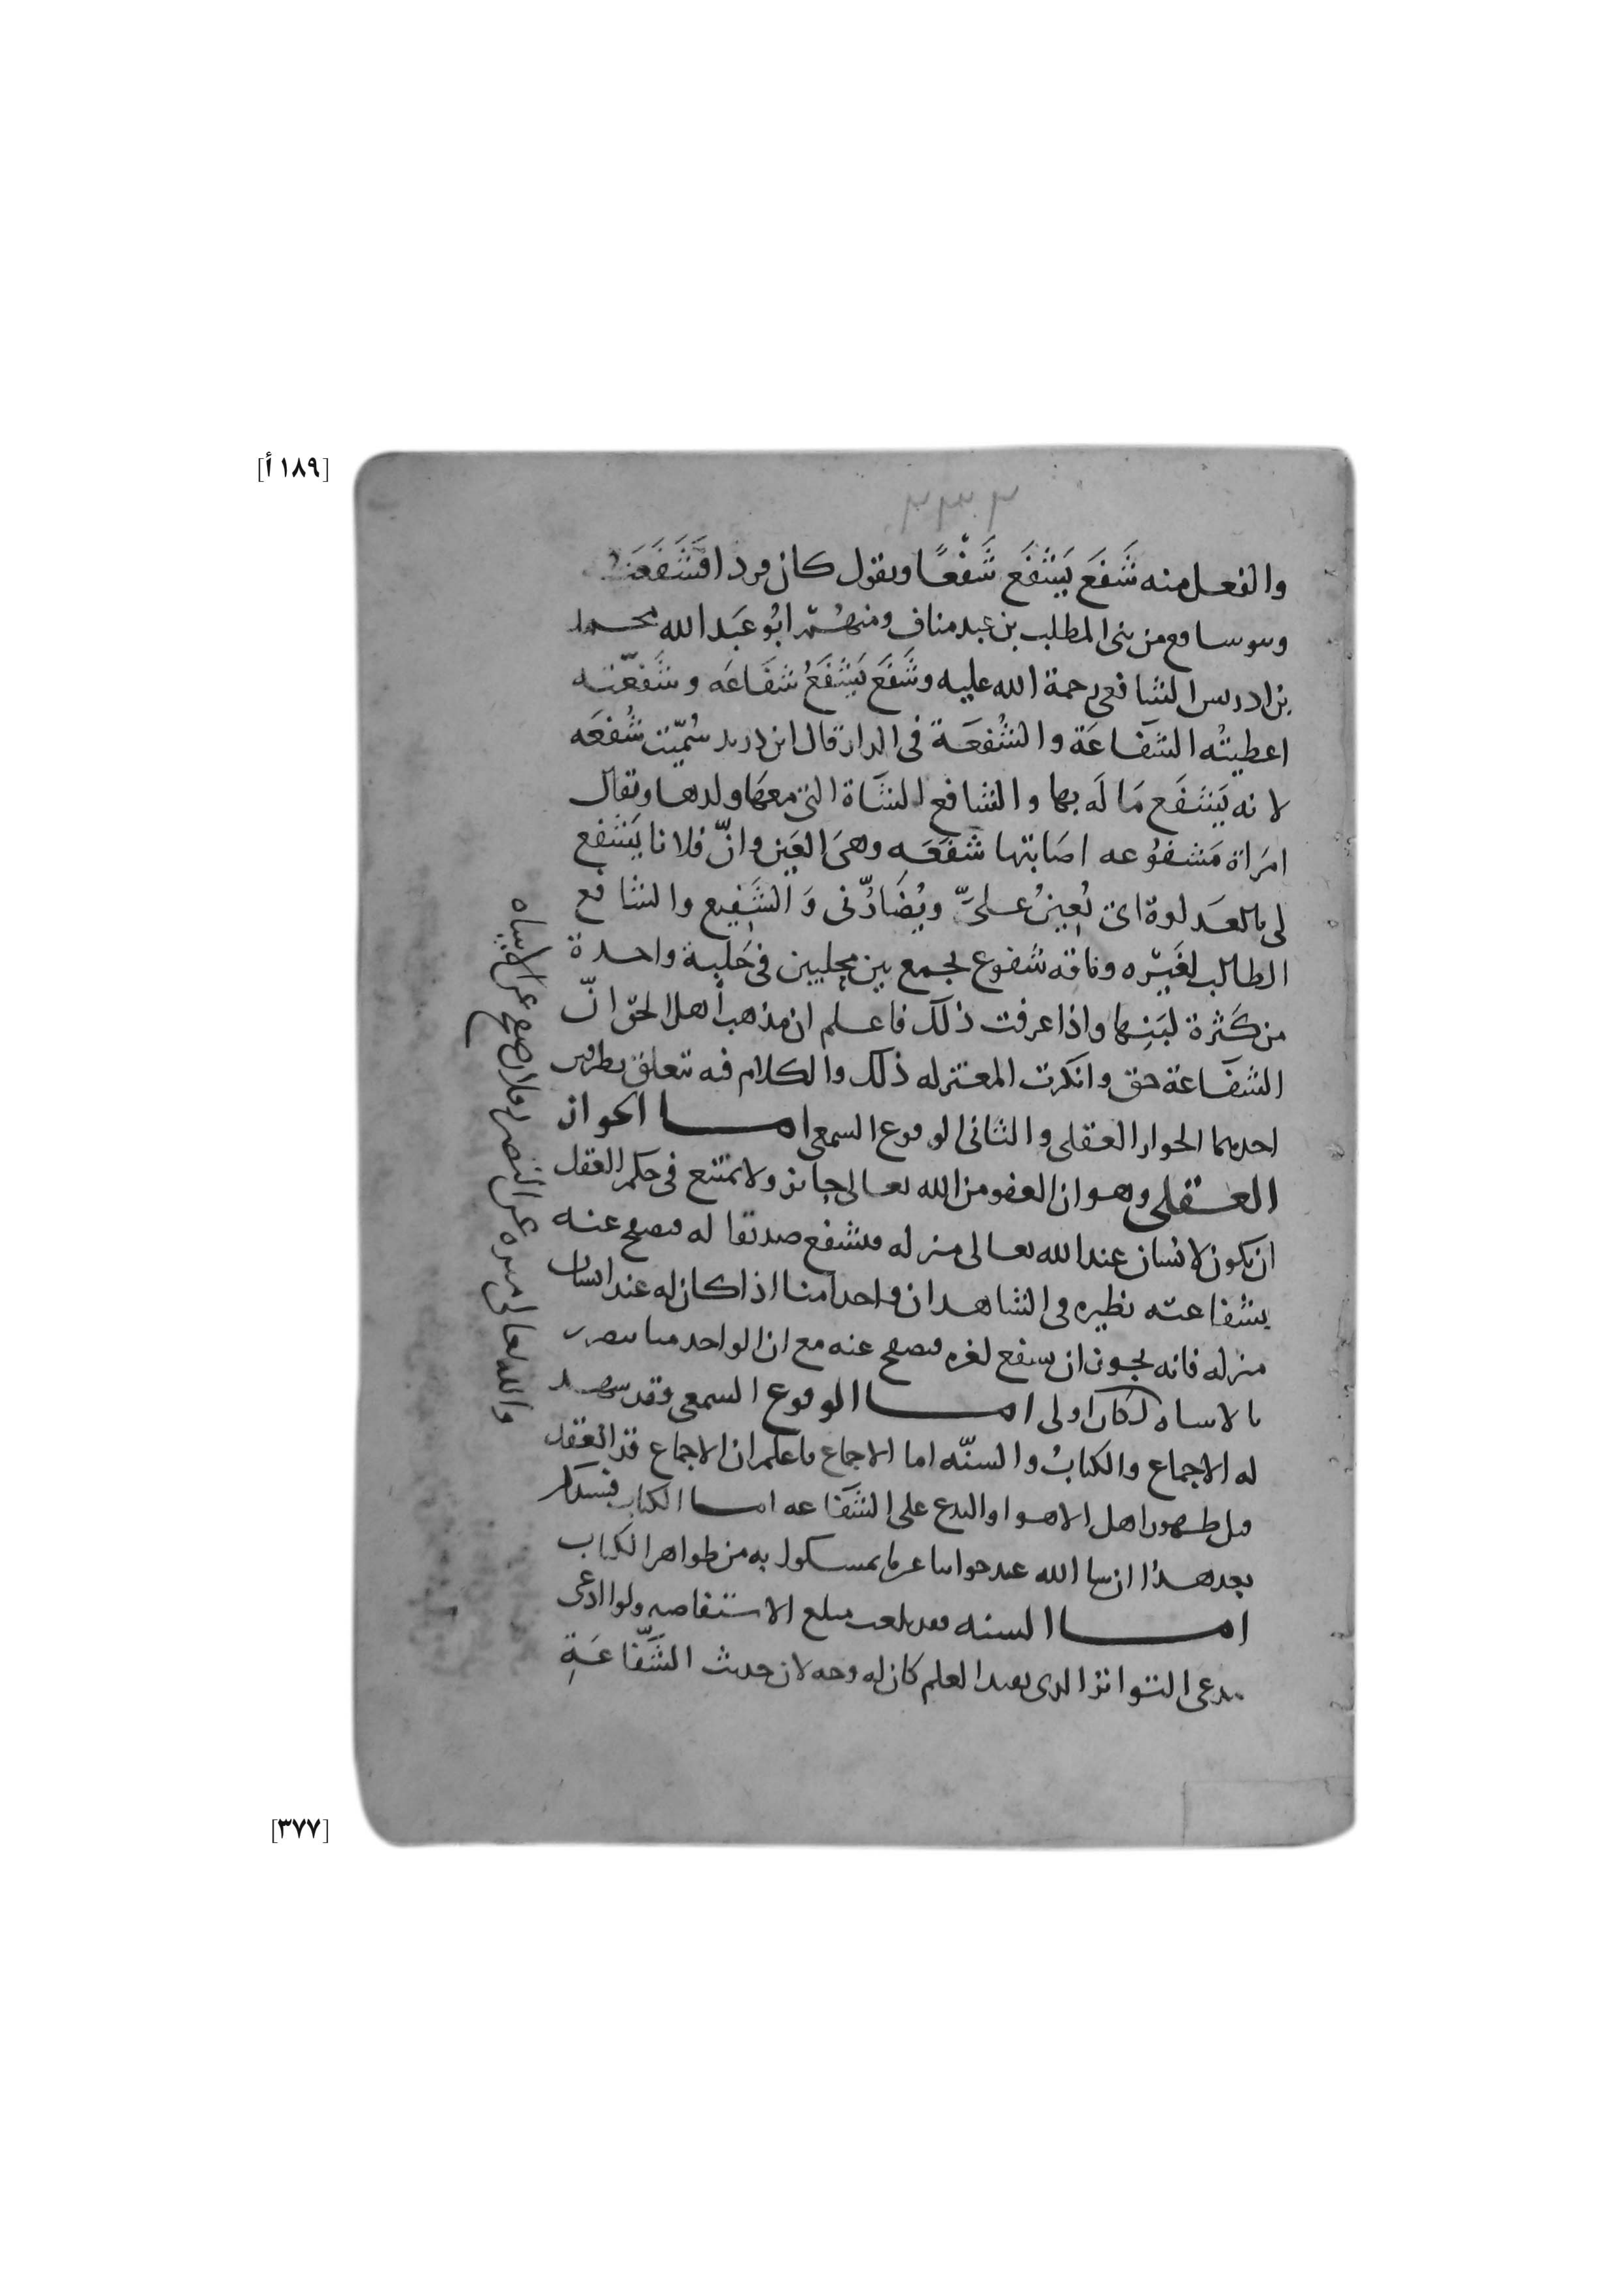 [١٨٩ أ]
والفعل منه شَفَعَ يَشْفَع شَفْعًا ويقول كان فردا فَشَفَعَتْه
وبنو شافع من بني المطلب بن عبد مناف ومنهُمْ ابُو عَبد الله محمد
بن ادريس الشافعي رحمة الله عليه وشَفَعَ يَشْفَعُ شَفَاعَه وشَفّعْته
اعطيتُه الشَفَاعَة والشُفعَة في الدار قال ابن دريد سُمّيت شُفعَه
لانه يَشفَع مَا لَه بها والشافع الشَاة التي معهَا ولدها ويقال
امرَاة مَشفُوعه اصَابتها شفعَه وهي العَين وانّ فلانا يَشفع
لي بالعَداوة اي يُعِينُ علىَّ ويُضَادُّني وَالشَفِيع والشافع
الطالب لغَيْره وناقه شفوع تجمع بين محلبين في حَلبة واحدة
من كَثرة لبَنِها واذا عرفت ذلك فاعلم ان مذهب أهل الحق انّ
الشفَاعة حق وانكرت المعتزله ذلك والكلام فيه يتعلق بطرفين
احدهما الجواز العقلي والثاني الوقوع السمعي اما الجواز
العقلي وهو ان العفو من الله تعالى جائز ولا يمتنع في حكم العقل
ان يكون لانسان عند الله تعالى منزله فيشفع صديقا له فيصفح عنه
بشفاعته نظيره في الشاهد ان واحدا منا اذا كان له عند انسان
منزله فانه يجوز ان يشفع لغيره فيصفح عنه مع ان الواحد منا يتضرر
بالاساه كان اولى اما الوقوع السمعي فقد شهد
له الاجماع والكتابُ والسنّه اما الاجماع فاعلم ان الاجماع قد انعقد
قبل ظهور اهل الاهوا والبدع على الشَفَاعه اما الكتاب فسنذكر
بعد هذا ان شا الله عند جوابنا عما يتمسكون به من ظواهر الكتاب
اما السنه فقد بلغت مبلغ الاستفاضه ولو ادعى
مدعى التواتر الذي يفيد العلم كان له وجه لان حديث الشَّفَاعَةِ
والله تعالى منزه عن التضرر فلان يصفح عن من اساه
[٣٧٧]